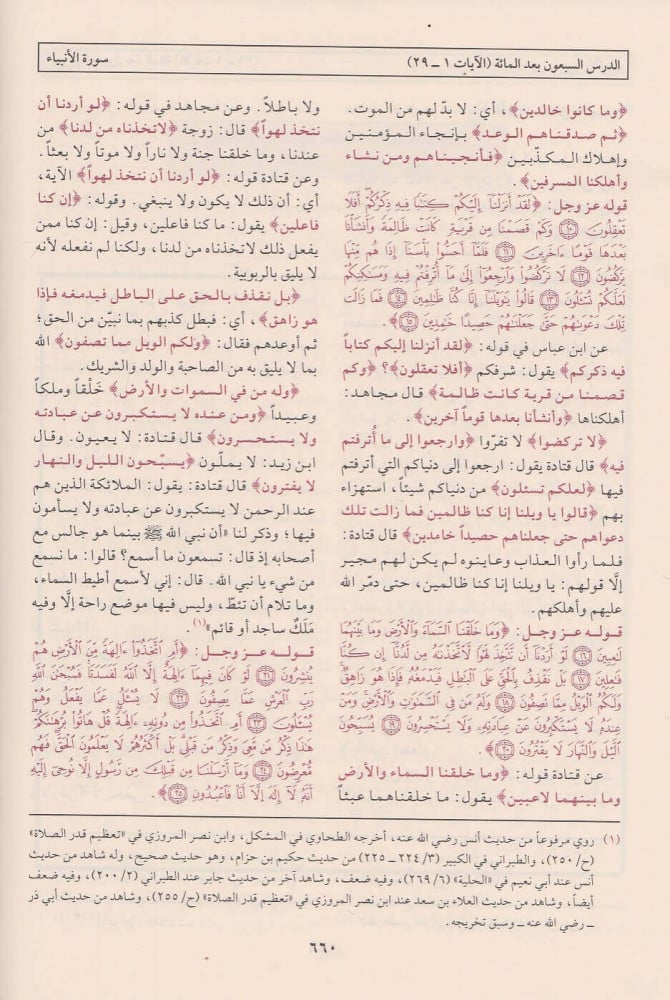 الدرس السبعون بعد المائة (الآيات ١ ــ ٢٩)
سورة الأنبياء
﴿وما كانوا خالدين﴾، أي: لا بدّ لهم من الموت.
﴿ثم صدقناهم الوعد﴾ بإنجاء المؤمنين
وإهلاك المكذّبين ﴿فأنجيناهم ومن نشاء
وأهلكنا المسرفين﴾.
قوله عز وجل: ﴿لَقَدْ أَنزَلْنَا إِلَيْكُمْ كِتَابًا فِيهِ ذِكْرُكُمْ أَفَلَا
تَعْقِلُونَ ١٠ وَكَمْ قَصَمْنَا مِن قَرْيَةٍ كَانَتْ ظَالِمَةً وَأَنشَأْنَا
بَعْدَهَا قَوْمًا ءَاخَرِينَ ١١ فَلَمَّا أَحَسُّوا بَأْسَنَا إِذَا هُم مِّنْهَا
يَرْكُضُونَ ١٢ لَا تَرْكُضُوا وَارْجِعُوا إِلَى مَا أُتْرِفْتُمْ فِيهِ وَمَسَاكِنِكُمْ
لَعَلَّكُمْ تُسْأَلُونَ ١٣ قَالُوا يَا وَيْلَنَا إِنَّا كُنَّا ظَالِمِينَ ١٤ فَمَا زَالَت
تِّلْكَ دَعْوَاهُمْ حَتَّى جَعَلْنَاهُمْ حَصِيدًا خَامِدِينَ ١٥﴾.
عن ابن عباس في قوله: ﴿لقد أنزلنا إليكم كتاباً
فيه ذكركم﴾ يقول: شرفكم ﴿أفلا تعقلون﴾؟ ﴿وكم
قصمنا من قرية كانت ظالمة﴾ قال مجاهد:
أهلكناها ﴿وأنشأنا بعدها قوماً آخرين﴾.
﴿لا تركضوا﴾ لا تفرّوا ﴿وارجعوا إلى ما أُترفتم
فيه﴾ قال قتادة يقول: ارجعوا إلى دنياكم التي أترفتم
فيها ﴿لعلكم تسئلون﴾ من دنياكم شيئاً، استهزاء
بهم ﴿قالوا يا ويلنا إنا كنا ظالمين فما زالت تلك
دعواهم حتى جعلناهم حصيداً خامدين﴾ قال قتادة:
فلما رأوا العذاب وعاينوه لم يكن لهم مجير
إلَّا قولهم: يا ويلنا إنا كنا ظالمين، حتى دمّر الله
عليهم وأهلكهم.
قوله عز وجل: ﴿وَمَا خَلَقْنَا السَّمَاءَ وَالْأَرْضَ وَمَا بَيْنَهُمَا
لَاعِبِينَ ١٦ لَوْ أَرَدْنَا أَن نَّتَّخِذَ لَهْوًا لَّاتَّخَذْنَاهُ مِن لَّدُنَّا إِن كُنَّا
فَاعِلِينَ ١٧ بَلْ نَقْذِفُ بِالْحَقِّ عَلَى الْبَاطِلِ فَيَدْمَغُهُ فَإِذَا هُوَ زَاهِقٌ
وَلَكُمُ الْوَيْلُ مِمَّا تَصِفُونَ ١٨ وَلَهُ مَن فِي السَّمَاوَاتِ وَالْأَرْضِ وَمَنْ
عِندَهُ لَا يَسْتَكْبِرُونَ عَنْ عِبَادَتِهِ وَلَا يَسْتَحْسِرُونَ ١٩ يُسَبِّحُونَ
اللَّيْلَ وَالنَّهَارَ لَا يَفْتُرُونَ ٢٠﴾.
عن قتادة قوله: ﴿وما خلقنا السماء والأرض
وما بينهما لاعبين﴾ يقول: ما خلقناهما عبثاً
ولا باطلاً. وعن مجاهد في قوله: ﴿لو أردنا أن
نتخذ لهواً﴾ قال: زوجة ﴿لاتخذناه من لدنا﴾ من
عندنا، وما خلقنا جنة ولا ناراً ولا موتاً ولا بعثاً.
وعن قتادة قوله: ﴿لو أردنا أن نتخذ لهواً﴾ الآية،
أي: أن ذلك لا يكون ولا ينبغي. وقوله: ﴿إن كنا
فاعلين﴾ يقول: ما كنا فاعلين، وقيل: إن كنا ممن
يفعل ذلك لاتخذناه من لدنا، ولكنا لم نفعله لأنه
لا يليق بالربوبية.
﴿بل نقذف بالحق على الباطل فيدمغه فإذا
هو زاهق﴾، أي: فبطل كذبهم بما نبيّن من الحق؛
ثم أوعدهم فقال: ﴿ولكم الويل مما تصفون﴾ الله
بما لا يليق به من الصاحبة والولد والشريك.
﴿وله من في السموات والأرض﴾ خَلْقاً ومُلكاً
وعبيداً ﴿ومن عنده لا يستكبرون عن عبادته
ولا يستحسرون﴾ قال قتادة: لا يعيون. وقال
ابن زيد: لا يملّون ﴿يسبّحون الليل والنهار
لا يفترون﴾ قال قتادة: يقول: الملائكة الذين هم
عند الرحمن لا يستكبرون عن عبادته ولا يسأمون
فيها؛ وذكر لنا «أن نبي الله ﷺ بينما هو جالس مع
أصحابه إذ قال: تسمعون ما أسمع؟ قالوا: ما نسمع
من شيء يا نبي الله. قال: إني لأسمع أطيط السماء،
وما تلام أن تئطّ، وليس فيها موضع راحة إلَّا وفيه
مَلَكٌ ساجد أو قائم»(١).
قوله عز وجل: ﴿أَمِ اتَّخَذُوا ءَالِهَةً مِّنَ الْأَرْضِ هُمْ
يُنشِرُونَ ٢١ لَوْ كَانَ فِيهِمَا ءَالِهَةٌ إِلَّا اللَّهُ لَفَسَدَتَا فَسُبْحَانَ اللَّهِ
رَبِّ الْعَرْشِ عَمَّا يَصِفُونَ ٢٢ لَا يُسْأَلُ عَمَّا يَفْعَلُ وَهُمْ
يُسْأَلُونَ ٢٣ أَمِ اتَّخَذُوا مِن دُونِهِ ءَالِهَةً قُلْ هَاتُوا بُرْهَانَكُمْ
هَذَا ذِكْرُ مَن مَّعِيَ وَذِكْرُ مَن قَبْلِي بَلْ أَكْثَرُهُمْ لَا يَعْلَمُونَ الْحَقَّ فَهُم
مُّعْرِضُونَ ٢٤ وَمَا أَرْسَلْنَا مِن قَبْلِكَ مِن رَّسُولٍ إِلَّا نُوحِي إِلَيْهِ
أَنَّهُ لَا إِلَهَ إِلَّا أَنَا فَاعْبُدُونِ ٢٥﴾.
(١) روي مرفوعاً من حديث أنس رضي الله عنه، أخرجه الطحاوي في المشكل، وابن نصر المروزي في «تعظيم قدر الصلاة»
(ح/٢٥٠)، والطبراني في الكبير (٣/ ٢٢٤ ــ ٢٢٥) من حديث حكيم بن حزام، وهو حديث صحيح، وله شاهد من حديث
أنس عند أبي نعيم في «الحلية» (٦/ ٢٦٩)، وفيه ضعف، وشاهد آخر من حديث جابر عند الطبراني (٢/ ٢٠٠)، وفيه ضعف
أيضاً، وشاهد من حديث العلاء بن سعد عند ابن نصر المروزي في «تعظيم قدر الصلاة» (ح/٢٥٥)، وشاهد من حديث أبي ذر
ــ رضي الله عنه ــ وسبق تخريجه.
٦٦٠